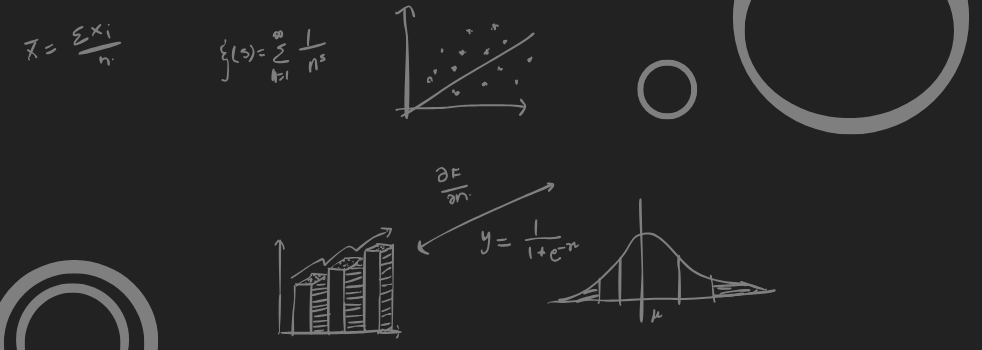 x̄ = Σxi / n
ζ(s) = ∑_{n=1}^{∞} 1/n^s
∂F/∂n
y = 1 / 1+e^-x
μ